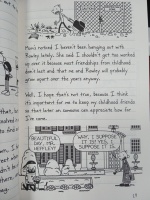 Mom's noticed I haven't been hanging out with
Rowley lately. She said I shouldn't get too worked
up over it because most friendships from childhood
don't last and that me and Rowley will probably
drift apart over the years anyway.
Well, I hope that's not true, because I think
it's important for me to keep my childhood friends
so that later on someone can appreciate how far
I've come.
BEAUTIFUL
DAY, MR.
HEFFLEY!
WHY, I SUPPOSE
IT IS! YES, I
SUPPOSE IT IS.